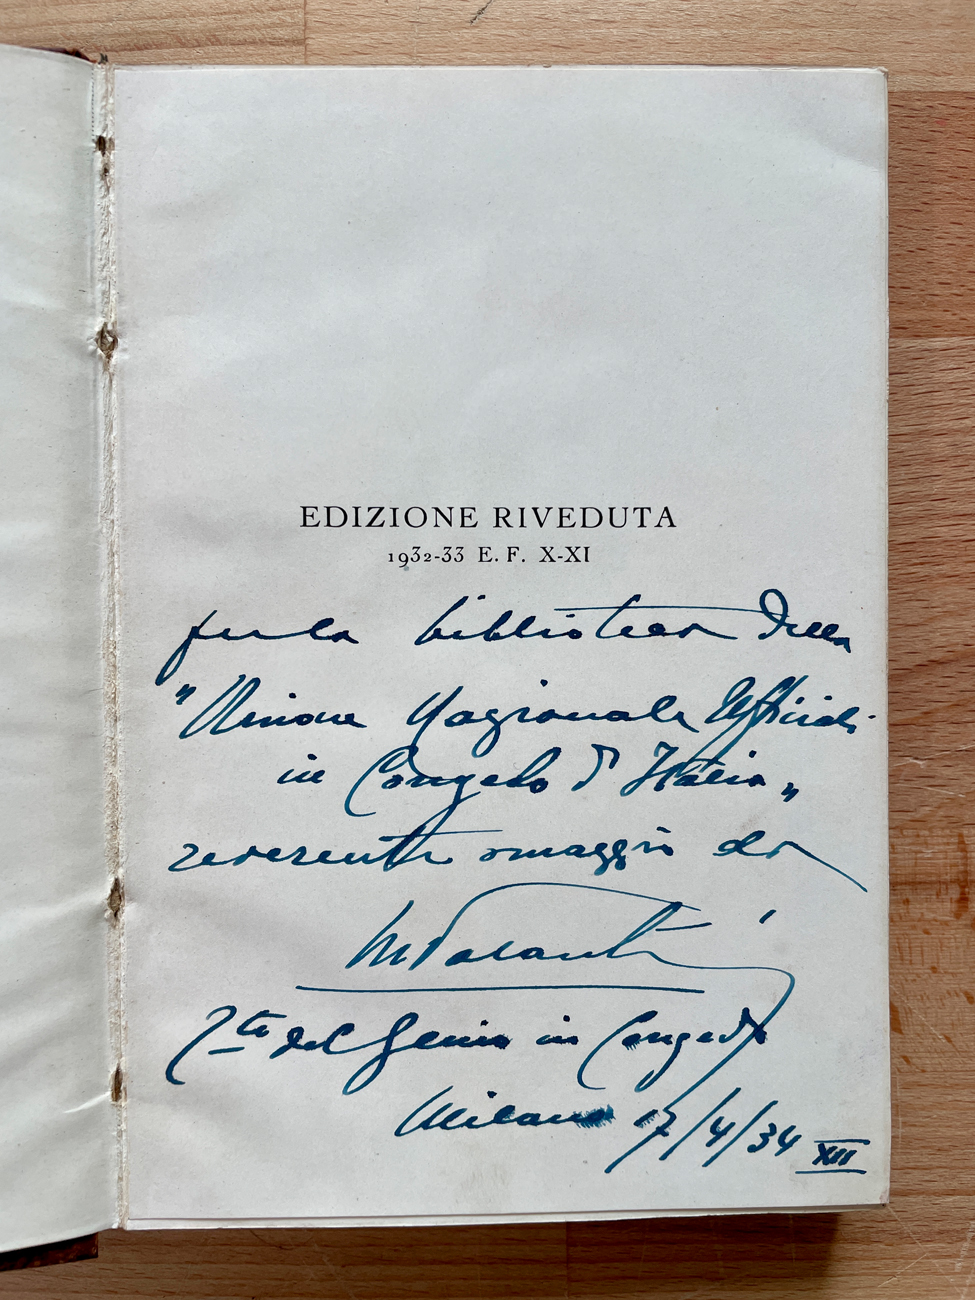 EDIZIONE RIVEDUTA
1932-33 E. F. X-XI
per la biblioteca della
"Unione Nazionale Ufficiali
in Congedo d'Italia„
reverente omaggio da
MPalanti
del Genio in Congedo
Milano 17/4/34 XII